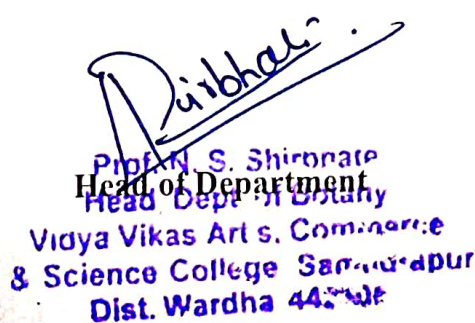 Prof. N. S. Shirbhate
Head of Department
Head Dept of Botany
Vidya Vikas Arts, Commerce
& Science College Samudrapur
Dist. Wardha